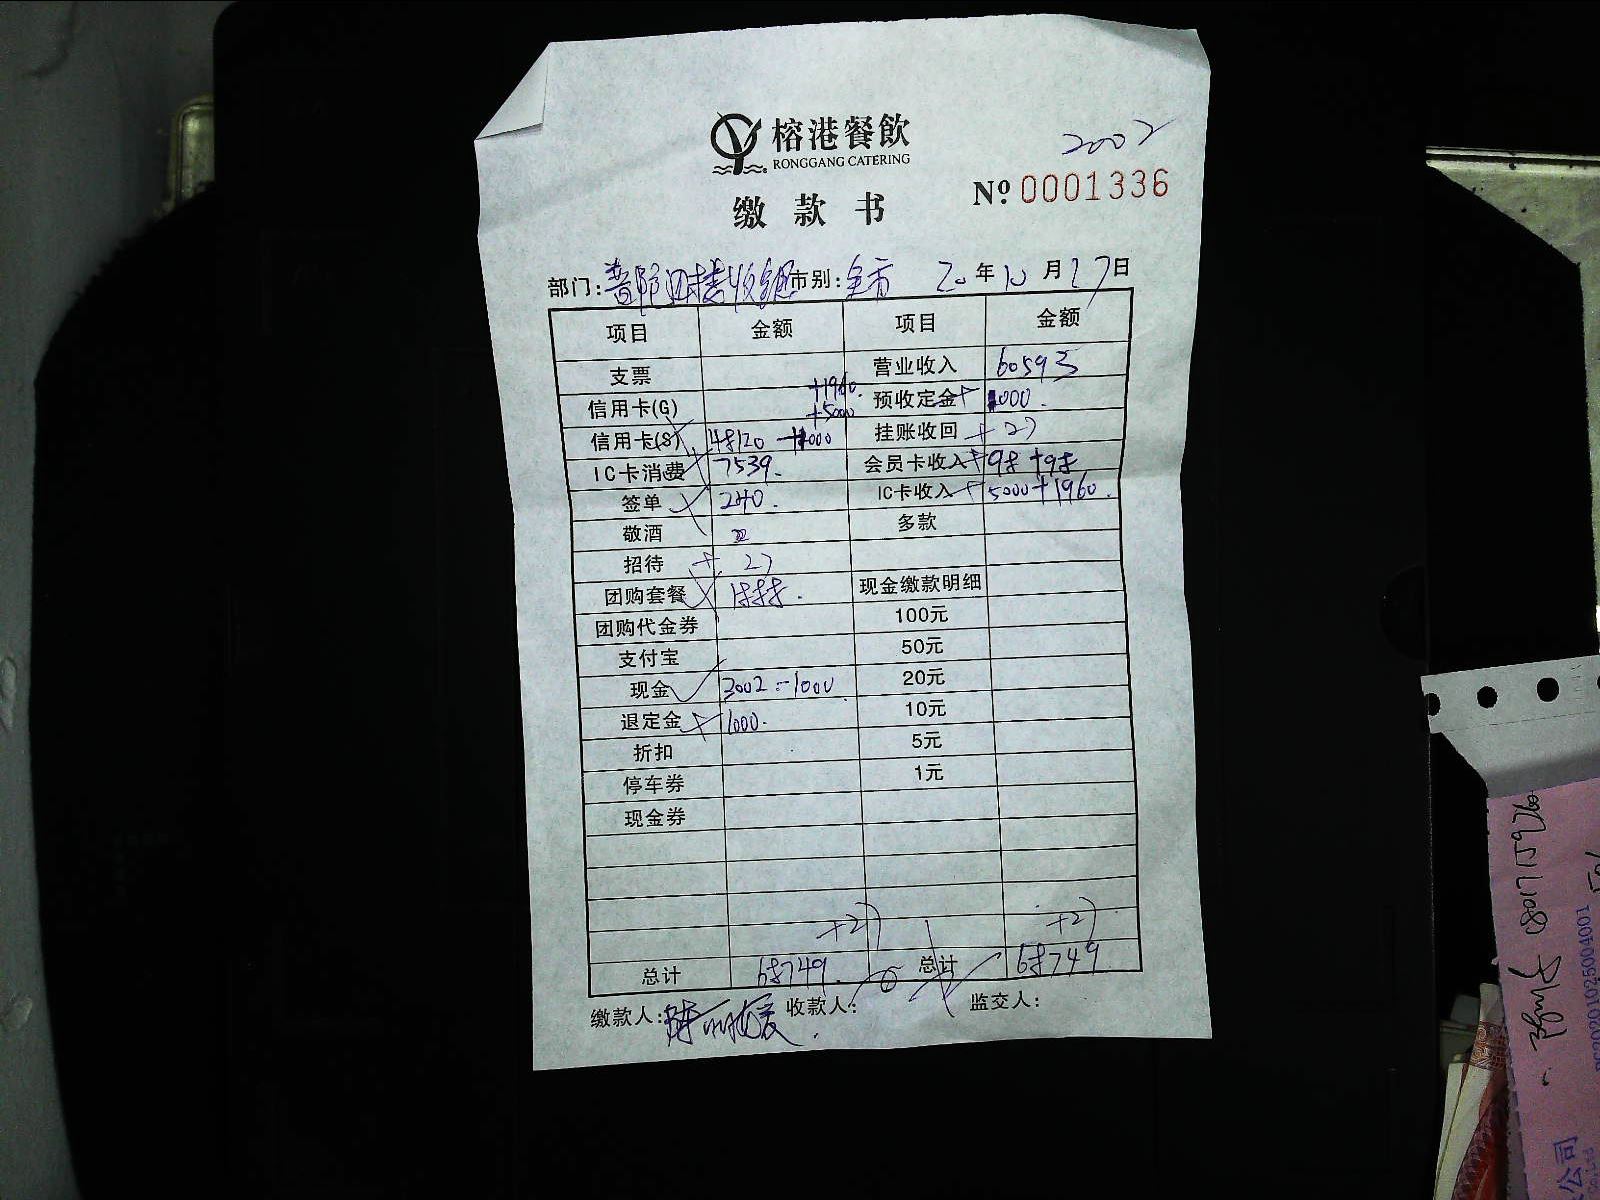 榕港餐飲
RONGGANG CATERING
2002
缴款书
Nº 0001336
部门: 市别: 全市 20年10月27日
项目 金额 项目 金额
支票 营业收入 60593
信用卡(G) +1960. +5000 预收定金 + 1000.
信用卡(S) 48120 +1000 挂账收回 + 27
IC卡消费 7539. 会员卡收入 + 98 +98
签单 240. IC卡收入 + 5000+1960.
敬酒 多款
招待 + 27
团购套餐 1888. 现金缴款明细
团购代金券 100元
支付宝 50元
现金 3002 -1000 20元
退定金 + 1000. 10元
折扣 5元
停车券 1元
现金券
+27 +27
总计 68749. 总计 68749
缴款人: 收款人: 监交人:
18017115926
PC20201025004001
公司